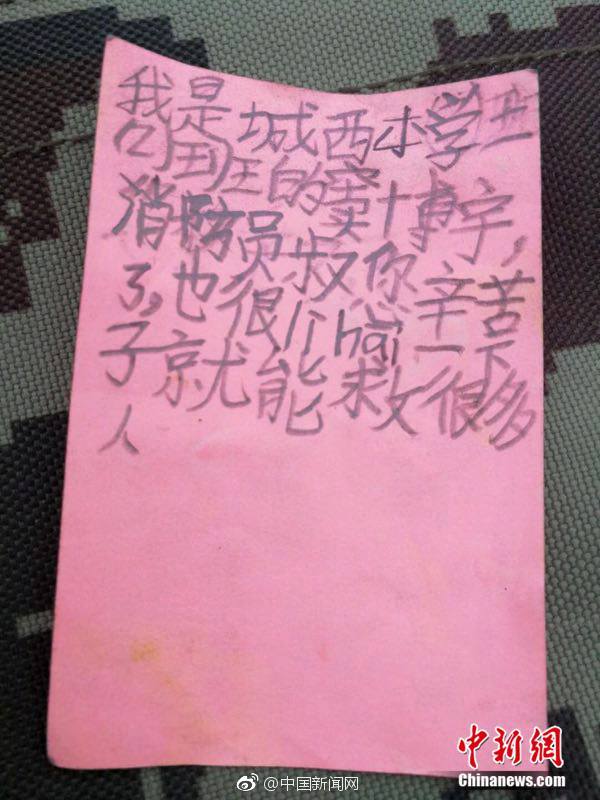 我是城西小学二
(1)班的窦博宇,
消防员叔你辛苦
了,也很厉hai一下
子就能救很多
人
中新网
Chinanews.com
@中国新闻网